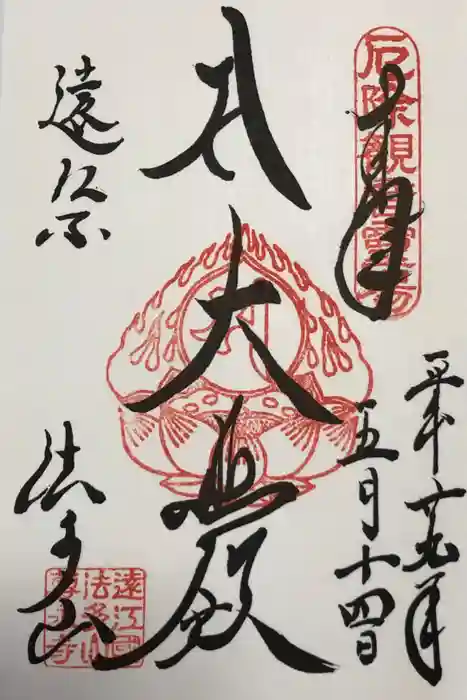 厄除觀音霊場
奉拝
平成廿九年
五月十四日
大悲殿
遠
法多山
遠江國
法多山
尊永寺